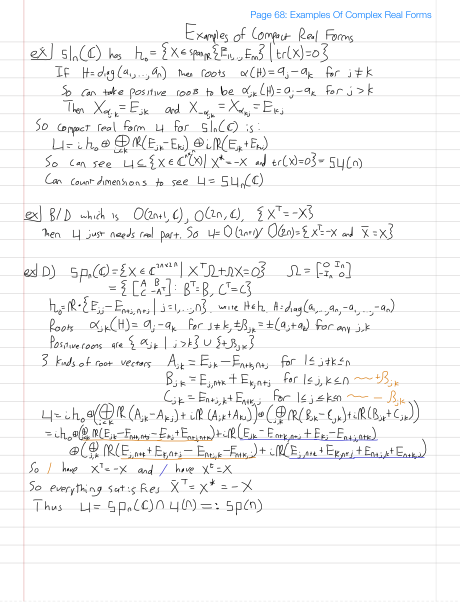 Page 68: Examples Of Complex Real Forms
Examples of Compact Real Forms
ex A) sln(ℂ) has h₀ = {X ∈ spanℝ{E₁₁,..., Enn} | tr(X)=0}
If H=diag(a₁,...,an) then roots α(H)=aj-ak for j≠k
So can take positive roots to be αjk(H)=aj-ak for j>k
Then Xαjk=Ejk and X-αjk=Xαkj=Ekj
So compact real form u for sln(ℂ) is:
u=ih₀⊕⊕ℝ(Ejk-Ekj)⊕iℝ(Ejk+Ekj)
So can see u⊆{X∈ℂⁿˣⁿ| X*=-X and tr(X)=0}=su(n)
Can count dimensions to see u=sun(ℂ)
ex B/D which is O(2n+1,ℂ), O(2n,ℂ), {Xᵀ=-X}
Then u just needs real part. So u=O(2n+1)/O(2n)={Xᵀ=-X and X̄=X}
ex D) spn(ℂ)={X∈ℂ²ⁿˣ²ⁿ | XᵀΩ+ΩX=0} Ω=[0 In -In 0]
={[A B C -Aᵀ]: Bᵀ=B, Cᵀ=C}
h₀=ℝ·{Ejj-En+j,n+j | j=1,...,n}. write H∈h₀ H=diag(a₁,...,an,-a₁,...,-an)
Roots αjk(H)=aj-ak for j≠k, ±βjk=±(aj+ak) for any j,k
Positive roots are {αjk | j>k}∪{+βjk}
3 kinds of root vectors Ajk=Ejk-En+k,n+j for 1≤j≠k≤n
Bjk=Ej,n+k+Ek,n+j for 1≤j,k≤n ~~ +βjk
Cjk=En+j,k+En+k,j for 1≤j≤k≤n ~~ -βjk
u=ih₀⊕(⊕ℝ(Ajk-Akj)+iℝ(Ajk+Akj))⊕(⊕ℝ(Bjk-Cjk)+iℝ(Bjk+Cjk))
=ih₀⊕(⊕ℝ(Ejk-En+k,n+j-Ekj+En+j,n+k)+iℝ(Ejk-En+k,n+j+Ekj-En+j,n+k)
⊕(⊕ℝ(Ej,n+k+Ek,n+j-En+j,k-En+k,j)+iℝ(Ej,n+k+Ek,n+j+En+j,k+En+k,j))
So / have Xᵀ=-X and / have Xᵗ=X
So everything satisfies X̄ᵀ=X*=-X
Thus u=spn(ℂ)∩u(n)=:sp(n)